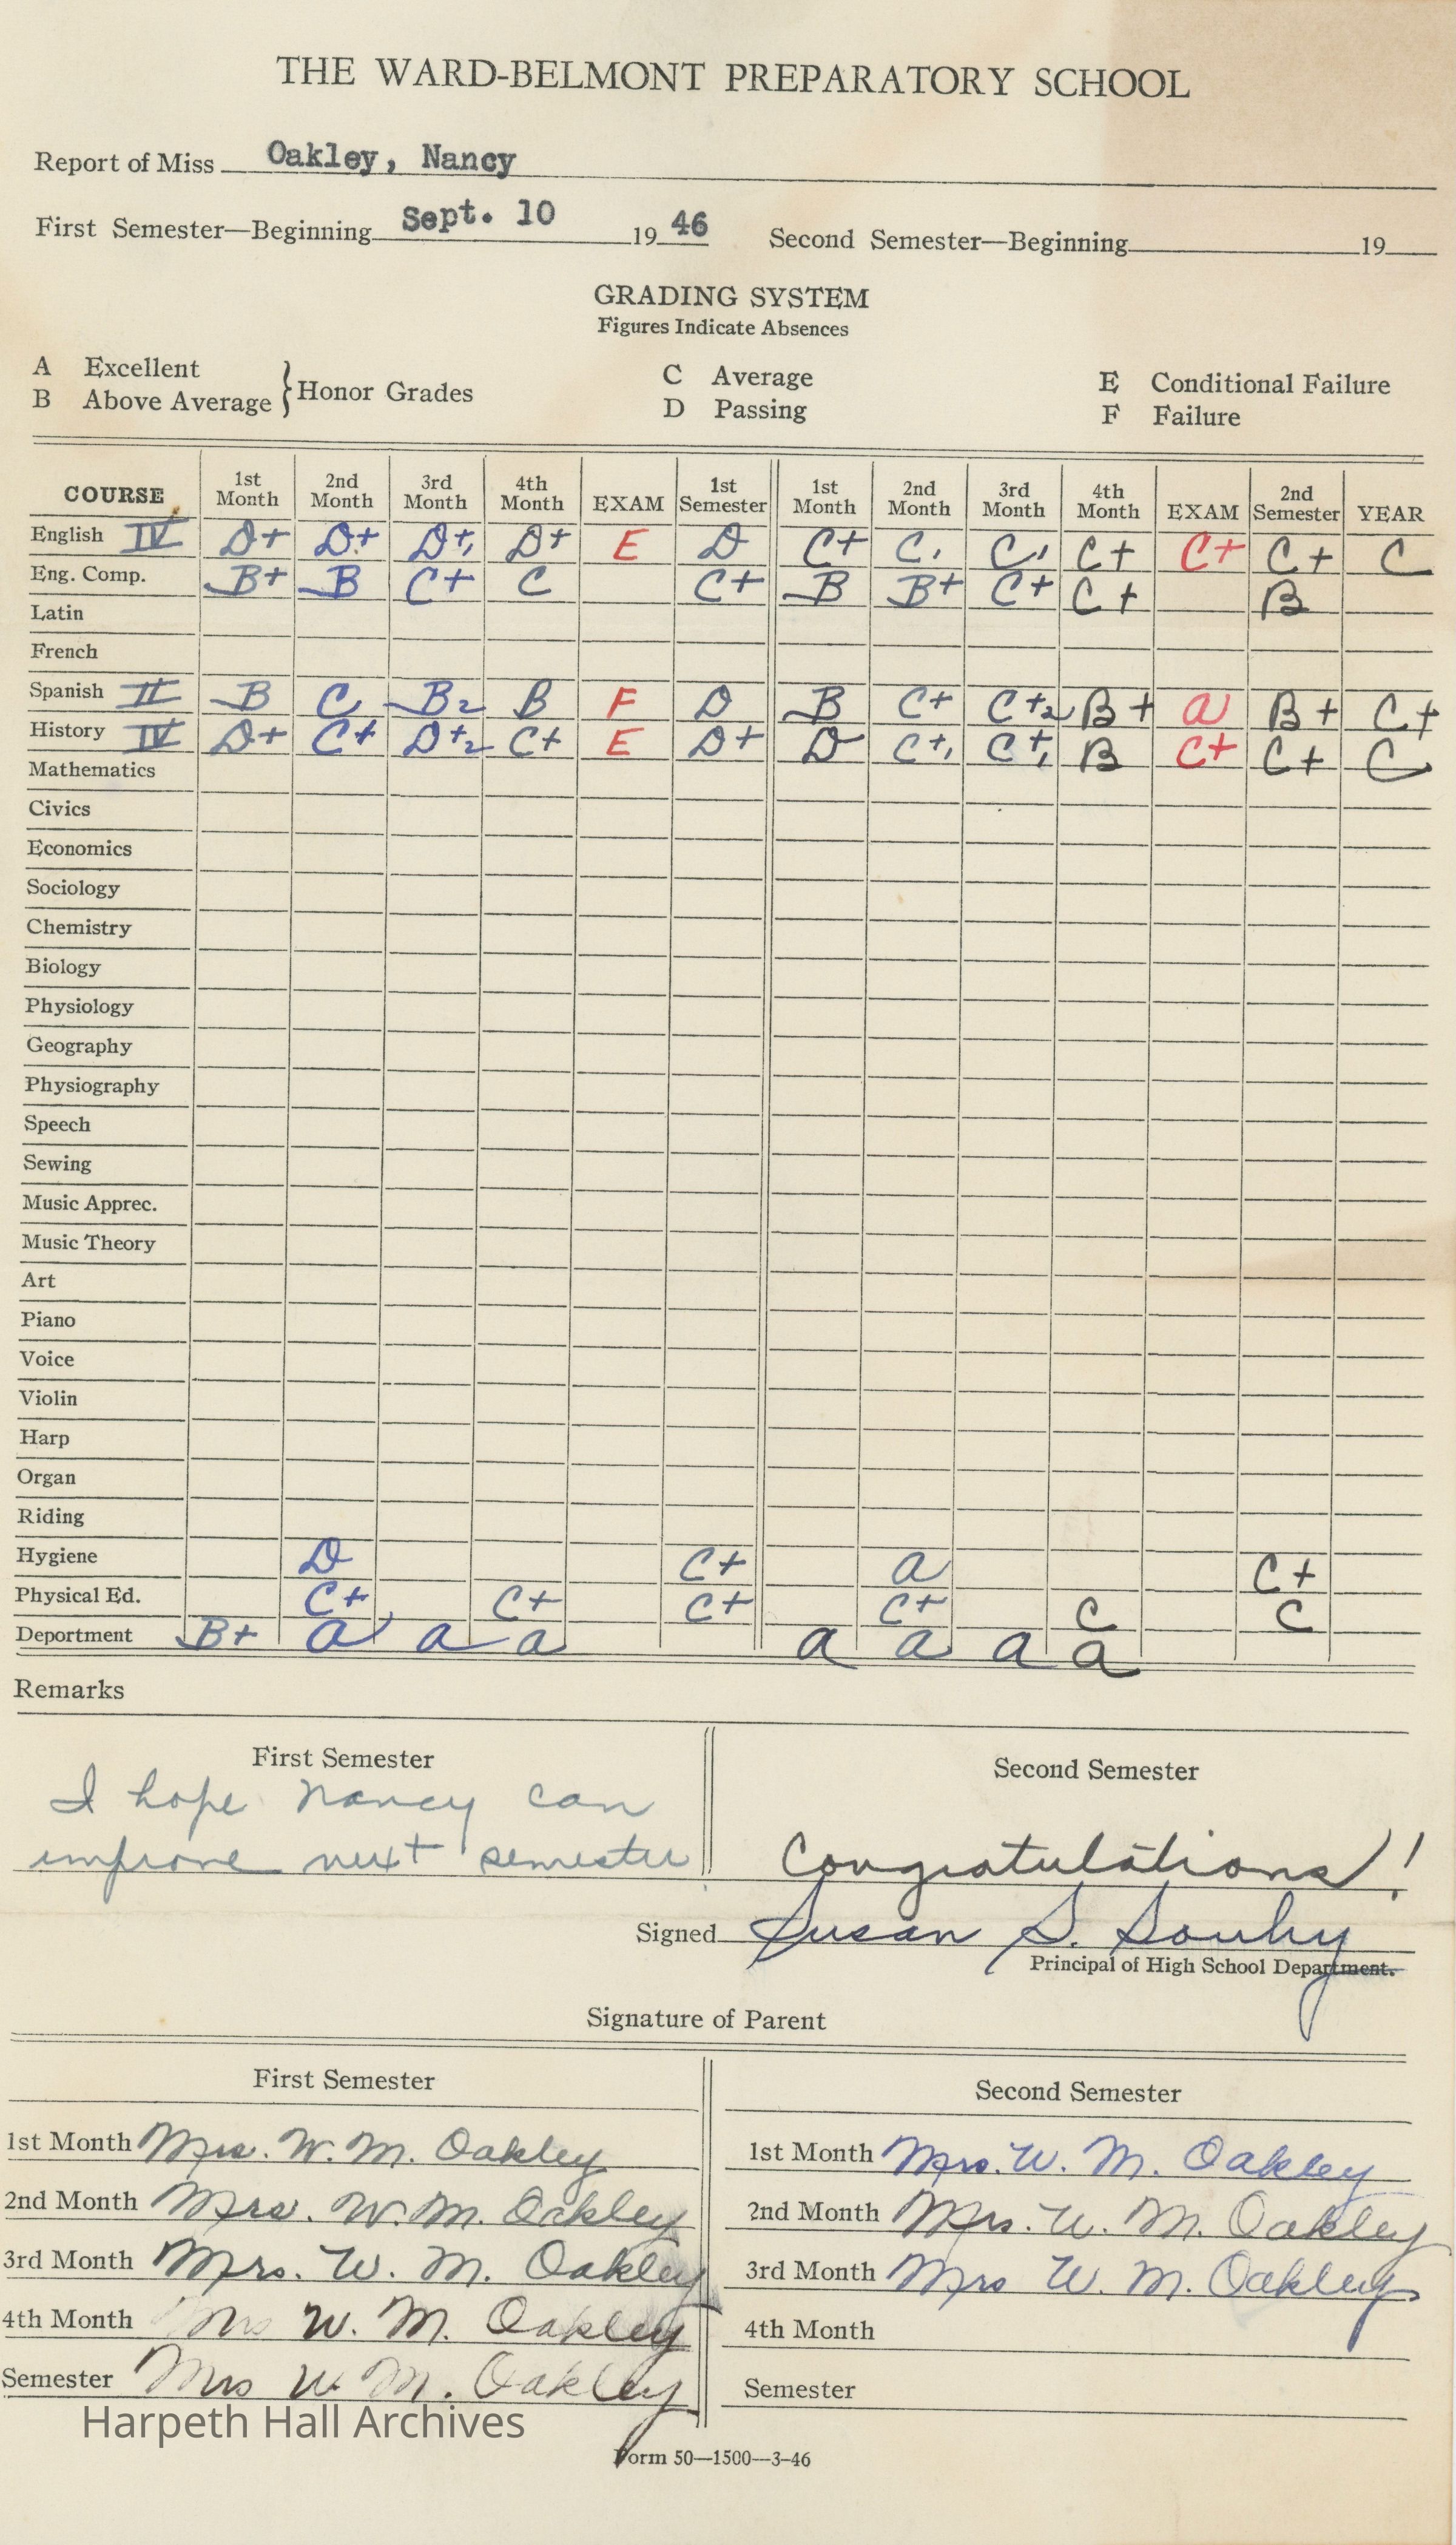 THE WARD-BELMONT PREPARATORY SCHOOL
Report of Miss Oakley, Nancy
First Semester—Beginning Sept. 10 19 46 Second Semester—Beginning 19
GRADING SYSTEM
Figures Indicate Absences
A Excellent
B Above Average } Honor Grades
C Average
D Passing
E Conditional Failure
F Failure
COURSE 1st Month 2nd Month 3rd Month 4th Month EXAM 1st Semester 1st Month 2nd Month 3rd Month 4th Month EXAM 2nd Semester YEAR
English IV D+ D+ D+1 D+ E D C+ C1 C1 C+ C+ C+ C
Eng. Comp. B+ B C+ C C+ B B+ C+ C+ B
Latin
French
Spanish II B C B2 B F D B C+ C+2 B+ a B+ C+
History IV D+ C+ D+2 C+ E D+ D C+1 C+1 B C+ C+ C
Mathematics
Civics
Economics
Sociology
Chemistry
Biology
Physiology
Geography
Physiography
Speech
Sewing
Music Apprec.
Music Theory
Art
Piano
Voice
Violin
Harp
Organ
Riding
Hygiene D C+ a C+
Physical Ed. C+ C+ C+ C+ C C
Deportment B+ a a a a a a a
Remarks
First Semester
I hope Nancy can
improve next semester
Second Semester
Congratulations!
Signed Susan S. Souby
Principal of High School Department.
Signature of Parent
First Semester
1st Month Mrs. W. M. Oakley
2nd Month Mrs. W. M. Oakley
3rd Month Mrs. W. M. Oakley
4th Month Mrs W. M. Oakley
Semester Mrs W. M. Oakley
Second Semester
1st Month Mrs. W. M. Oakley
2nd Month Mrs. W. M. Oakley
3rd Month Mrs W. M. Oakley
4th Month
Semester
Harpeth Hall Archives
Form 50—1500—3-46